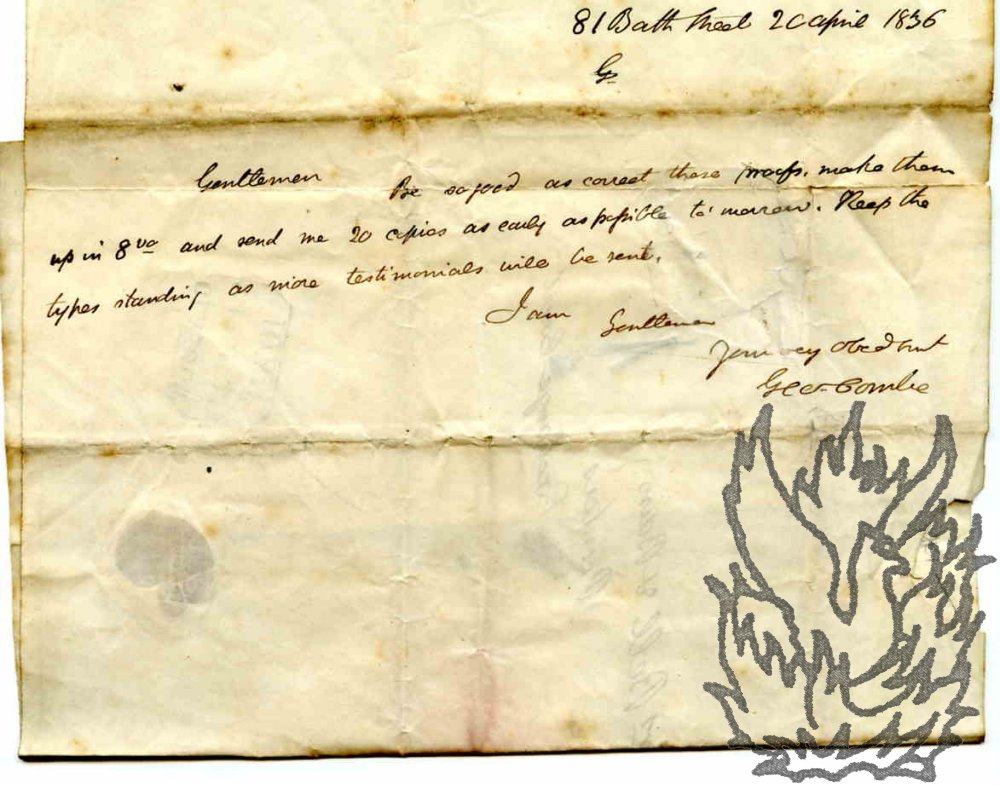 81 Bath Street 20 April 1836
Gentlemen Be so good as correct these proofs, make them
up in 8vo and send me 20 copies as early as possible to morrow. Keep the
types standing as more testimonials will be sent.
I am
Gentlemen
Your very obed
Geo. Combe